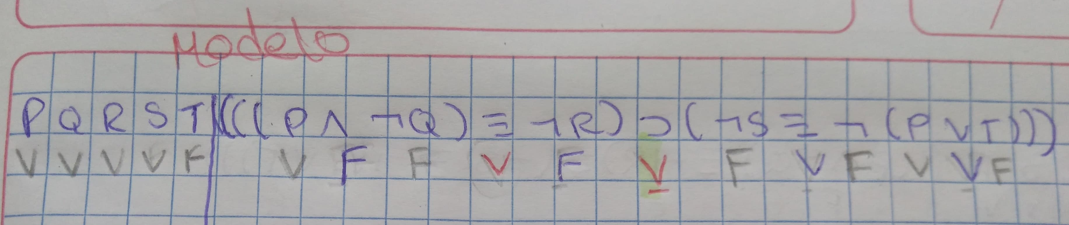 Modelo
P Q R S T (((P ∧ ¬Q) ≡ ¬R) ⊃ (¬S ≡ ¬(P ∨ T)))
V V V V F V F F V F V F V F V V F